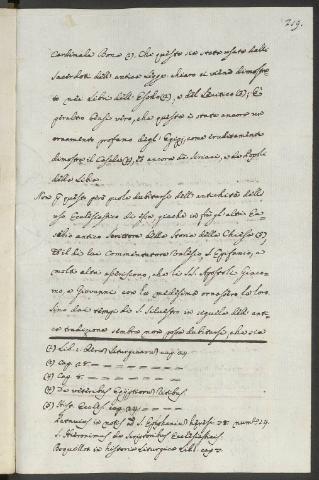 219.
Cardinale Bona (1). Che questo sia stato usato dalli
Sacerdoti dell'antica legge chiaro ci viene dimostra-
to nei Libri dell'Esodo (2), e del Levitico (3); E
peraltro bensì vero, che questo è stato ancora un
ornamento profano degl'Egizj, come eruditamente
dimostra il Casalio (4), ed ancora de
della Libia.
Non per questo però puole dubitarsi dell'antichità dello
uso Ecclesiastico di esso, giacché in fra gl'altri Eu-
sebio antico Scrittore della Storia della Chiesa (5),
ed il di lui Commentatore Valesio, S. Epifanio, e
molti altri asseriscono, che li SS. Apostoli Giacomo,
e Giovanni con la medesima ornassero la loro
Sino dai tempi di S. Silvestro in seguito dell'anti-
ca tradizione sembra non possa dubitarsi, che sia
(1) Lib. 1. Rerum Liturgicarum cap. 24.
(2) Cap. 28.
(3) Cap. 8.
(4) De veteribus Egyptiorum Ritibus.
(5) Hist. Eccles. cap. 24.
Petavius in notis ad S. Epiphanium hæres. 78. num. 14.
S. Hieronimus de Scriptoribus Ecclesiasticis.
Bocquillot in historia Liturgica Lib. 1. cap. 7.